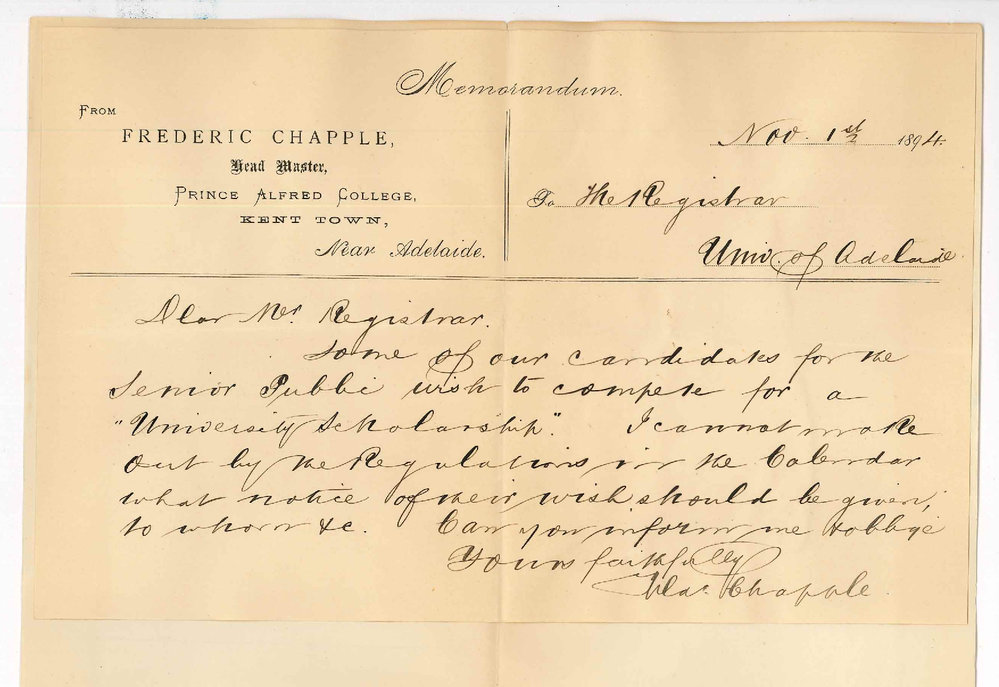 Memorandum.
FROM
FREDERIC CHAPPLE,
Head Master,
PRINCE ALFRED COLLEGE,
KENT TOWN,
Near Adelaide.
Nov. 1st 1894.
To The Registrar
Univ. of Adelaide
Dear Mr. Registrar.
Some of our candidates for the
Senior Public wish to compete for a
"University Scholarship". I cannot make
out by the Regulations in the Calendar
what notice of their wish should be given,
to whom &c. Can you inform me & oblige
Yours faithfully
Chapple.